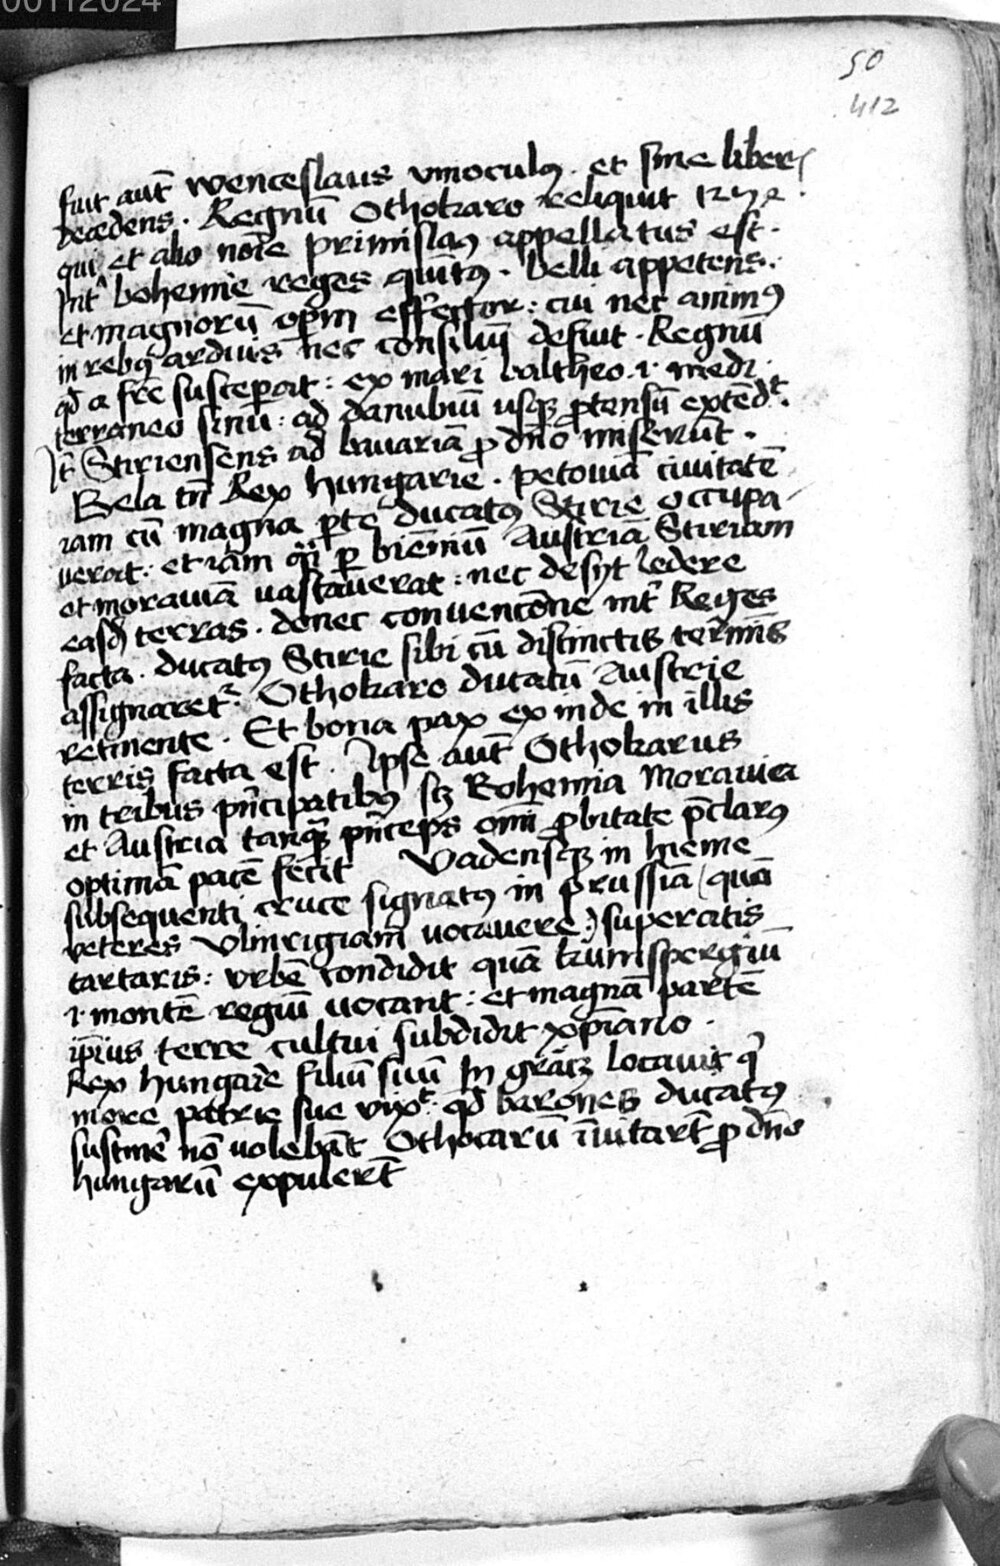 00112024
50
412
fuit aut̄ wenceslaus vnoculꝰ. et sine liber͛
decedens. Regnū Othokaro reliquit
qui et alio noīe primislaꝰ appellatus est.
Int͛ bohemie reges quītꝰ. belli appetens.
et magnorū opm̄ effector: cui nec animꝰ
in rebꝰ arduis nec consiliū defuit. Regnū
qd̄ a fr̄e susceperat: ex mari baltheo .i. medi
terraneo sinu: ad danubiū usqꝫ ꝓtensū extēdt.
It̄ Stiriensens ad bauariā ꝓ dn̄o miserūt.
Bela tn̄ Rex hungarie. petouiā ciuitatē
iam cū magna ꝑte ducatꝰ Stirie occupa
uerat: et iam ꝑ bienniū Austriā Stiriam
et morauiā uastauerat: nec desijt ledere
easdē terras. donec conuencōne int͛ Reges
facta. ducatꝰ Stirie sibi cū distinctis termīs
assignaret᷑. Othokaro ducatū Austrie
retinente. Et bona pax exinde in illis
terris facta est. Ipse aut̄ Othokarus
in tribus pn̄cipatibꝰ sꝫ Bohemia Morauia
et Austria tanqꝫ pn̄ceps omī ꝓbitate p̄clarꝰ
optimā pacē fecit Vadensqꝫ in hieme
subsequenti cruce signatꝰ in prussiā (quā
veteres Vlmrigiam uocauere) superatis
tartaris: vrbē condidit quā kūnispergiū
.i. montē regiū uocant: et magnā partē
ip̄ius terre cultui subdidit xp̄iano.
Rex hungarie filiū suū In grātz locauit qͥ
more patrie sue vixt. qd̄ barones ducatꝰ
sustine͛ nō volebāt Othocarū īuitart̄ ꝓ dn̄o
hungarū expulert̄